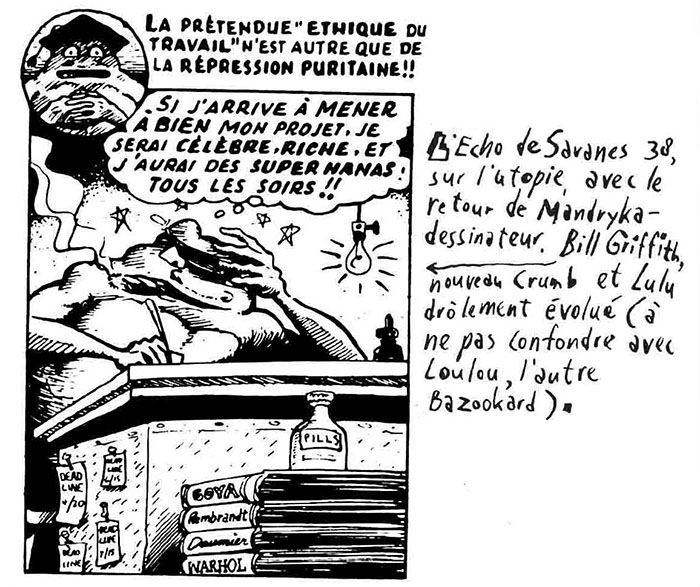 LA PRÉTENDUE "ETHIQUE DU
TRAVAIL" N'EST AUTRE QUE DE
LA RÉPRESSION PURITAINE!!
SI J'ARRIVE À MENER
À BIEN MON PROJET, JE
SERAI CÉLÈBRE, RICHE, ET
J'AURAI DES SUPER NANAS
TOUS LES SOIRS!!
L'Echo de Savanes 38,
sur l'utopie, avec le
retour de Mandryka-
dessinateur. Bill Griffith,
nouveau Crumb et Lulu
drôlement évolué (à
ne pas confondre avec
Loulou, l'autre
Bazookard).
PILLS
DEAD
LINE
4/20
DEAD
LINE
6/15
DEAD
LINE
7/15
DEAD
LINE
GOYA
Rembrandt
Daumier
WARHOL